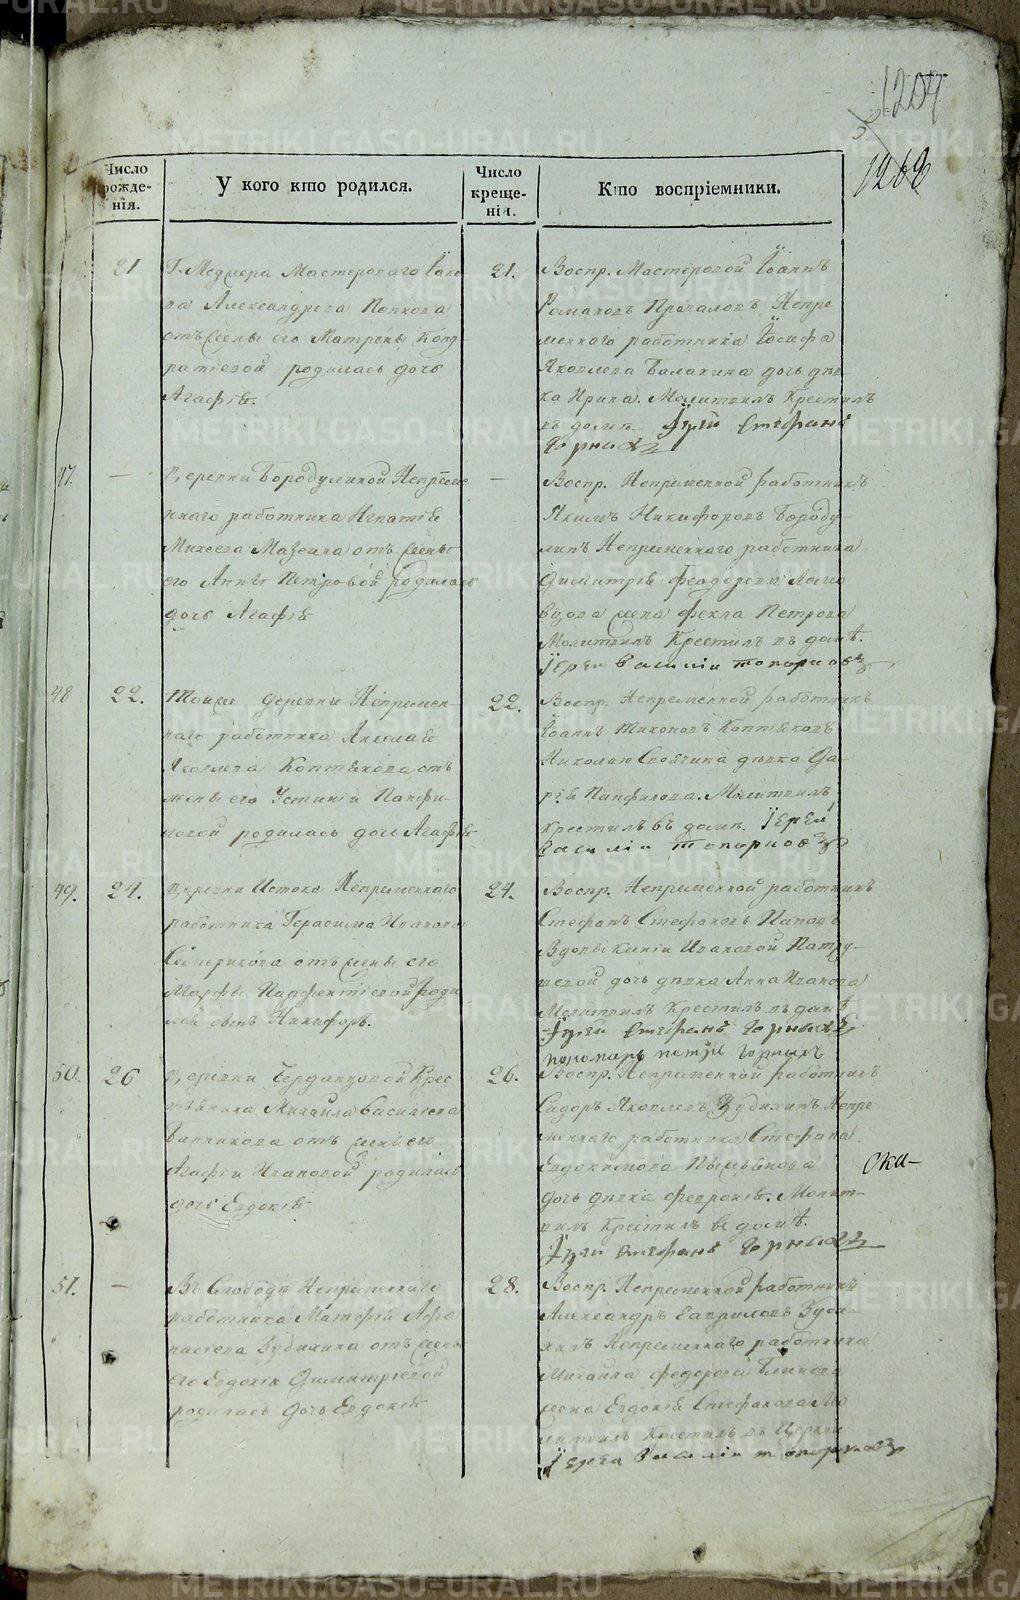 1204
1203
Число рожде-нія.
У кого кто родился.
Число креще-нія.
Кто воспріемники.
21
Мастероваго Іако
ва Александрова Попкова
отъ жены его Матрены Конд
ратіевой родилась дочь
Агафія.
21.
Воспр. Мастеровой Іоаннъ
Романовъ Непре
меннаго работника Іосифа
Яковлева Балакина дочь дѣв
ка Ирина. Молитвилъ Крестилъ
въ домѣ Іерей Стефанъ
Горныхъ
47.
—
Деревни Бородулиной Непреме
ннаго работника Игнатія
Михеева отъ жены
его Анны Петровой родилась
дочь Агафія
—
Воспр. Непременной работникъ
Якимъ Никифоровъ Бороду-
линъ Непременнаго работника
Димитрія Феодорова
жена Фекла Петрова
Молитвилъ Крестилъ въ домѣ.
Іерей Василій Топорковъ
48
22.
Тояже деревни Непремен-
наго работника Николая
Яковлева Коптякова отъ
жены его Устиніи Панфи-
ловой родилась дочь Агафія
22.
Воспр. Непременной работникъ
Іоаннъ Тихоновъ Коптяковъ
Николаю дѣвка Да-
рія Панфилова. Молитвилъ
Крестилъ въ домѣ. Іерей
Василій Топорковъ
49.
24.
Деревни Истока Непременнаго
работника Герасима Иванова
отъ жены его
Марфы Парфентіевой роди
лся сынъ Никифоръ.
24.
Воспр. Непременной работникъ
Стефанъ Стефановъ
Вдовы Ксеніи Ивановой Патру-
шевой дочь дѣвка Анна Иванова
Молитвилъ Крестилъ въ домѣ
Іерей Стефанъ Горныхъ
пономарь Петръ Горныхъ
50.
26
Деревни Крес
тьянина Михаила Василіева
Банникова отъ жены его
Агафіи Ивановой родилась
дочь Евдокія
26.
Воспр. Непременной работникъ
Сидоръ Яковлевъ Зудихинъ Непре
меннаго работника Стефана
Евдокимова
дочь дѣвка Февронія. Молит-
вилъ Крестилъ въ домѣ.
Іерей Стефанъ Горныхъ
Ока-
51.
—
Въ Слободѣ Непременнаго
работника Матфея Афа
насіева Зудихина отъ жены
его Евдокіи Димитріевой
родилась дочь Евдокія
28.
Воспр. Непременной работникъ
Александръ Гавриловъ Зуди-
хинъ Непременнаго работника
Михаила Федорова Блинова
жена Евдокія Стефанова Мо
литвилъ Крестилъ въ Церкви
Іерей Василій Топорковъ
METRIKI.GASO-URAL.RU